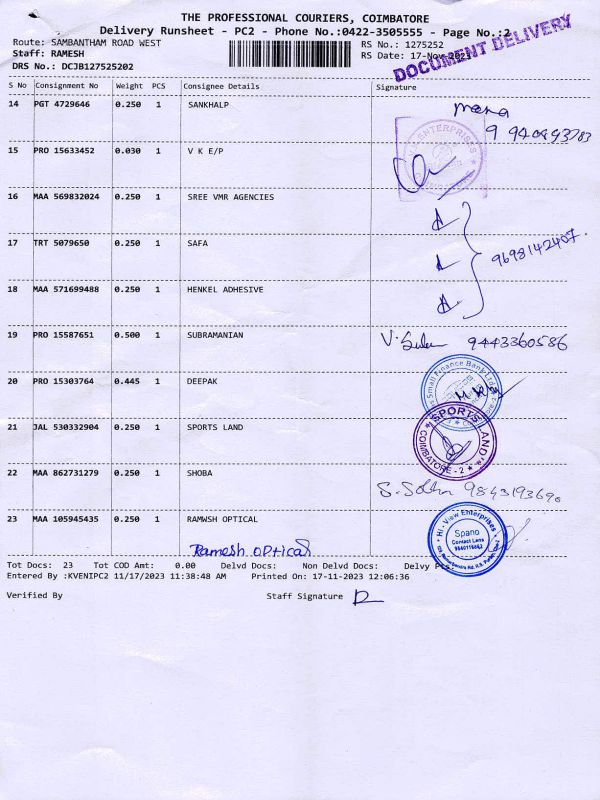 THE PROFESSIONAL COURIERS, COIMBATORE
Delivery Runsheet - PC2 - Phone No.:0422-3505555 - Page No.:2
DOCUMENT DELIVERY
Route: SAMBANTHAM ROAD WEST RS No.: 1275252
Staff: RAMESH RS Date: 17-Nov-2023
DRS No.: DCJB127525202
S No Consignment No Weight PCS Consignee Details Signature
14 PGT 4729646 0.250 1 SANKHALP
15 PRO 15633452 0.030 1 V K E/P
ENTERPRISES
16 MAA 569832024 0.250 1 SREE VMR AGENCIES
17 TRT 5079650 0.250 1 SAFA 9698142407.
18 MAA 571699488 0.250 1 HENKEL ADHESIVE
19 PRO 15587651 0.500 1 SUBRAMANIAN 9443360586
20 PRO 15303764 0.445 1 DEEPAK
Small Finance Bank Ltd
21 JAL 530332904 0.250 1 SPORTS LAND
SPORTS LAND
COIMBATORE - 2
22 MAA 862731279 0.250 1 SHOBA
23 MAA 105945435 0.250 1 RAMWSH OPTICAL
Hi - View Enterprises
Spano
Contact Lens
Ramesh optical
Tot Docs: 23 Tot COD Amt: 0.00 Delvd Docs: Non Delvd Docs: Delvy Pct:
Entered By :KVENIPC2 11/17/2023 11:38:48 AM Printed On: 17-11-2023 12:06:36
Verified By Staff Signature